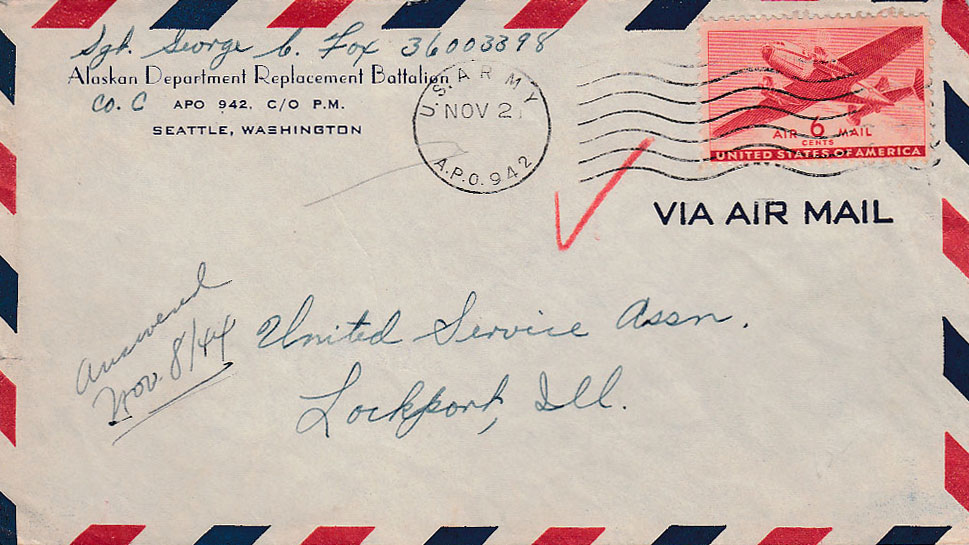 Sgt. George C. Fox 36003398
Alaskan Department Replacement Battalion
Co. C APO 942, C/O P.M.
SEATTLE, WASHINGTON
U.S. ARMY
NOV 2
A.P.O. 942
AIR 6 MAIL
CENTS
UNITED STATES OF AMERICA
VIA AIR MAIL
Answered
Nov. 8/44
United Service Assn.
Lockport, Ill.